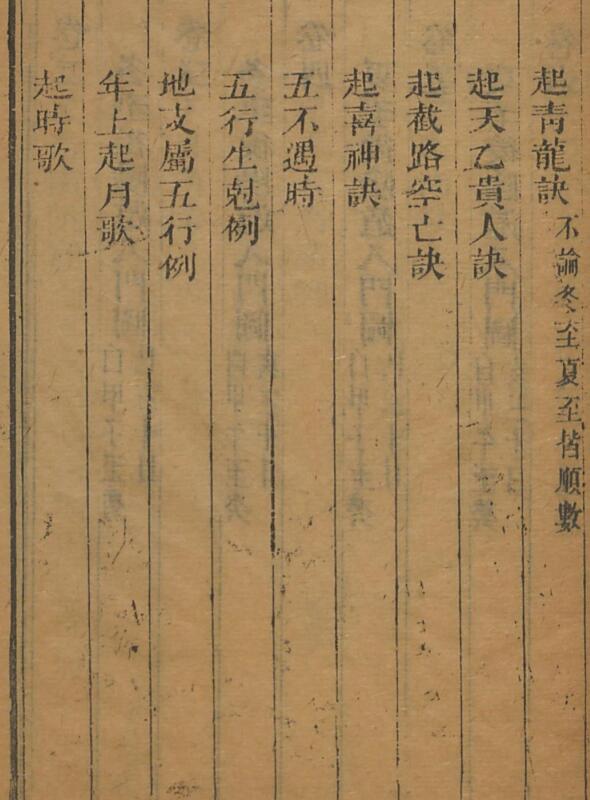 起靑龍訣不論冬至夏至皆順數
起天乙貴人訣
起截路空亡訣
起喜神訣
五不遇時
五行生尅例
地支屬五行例
年上起月歌
起時歌